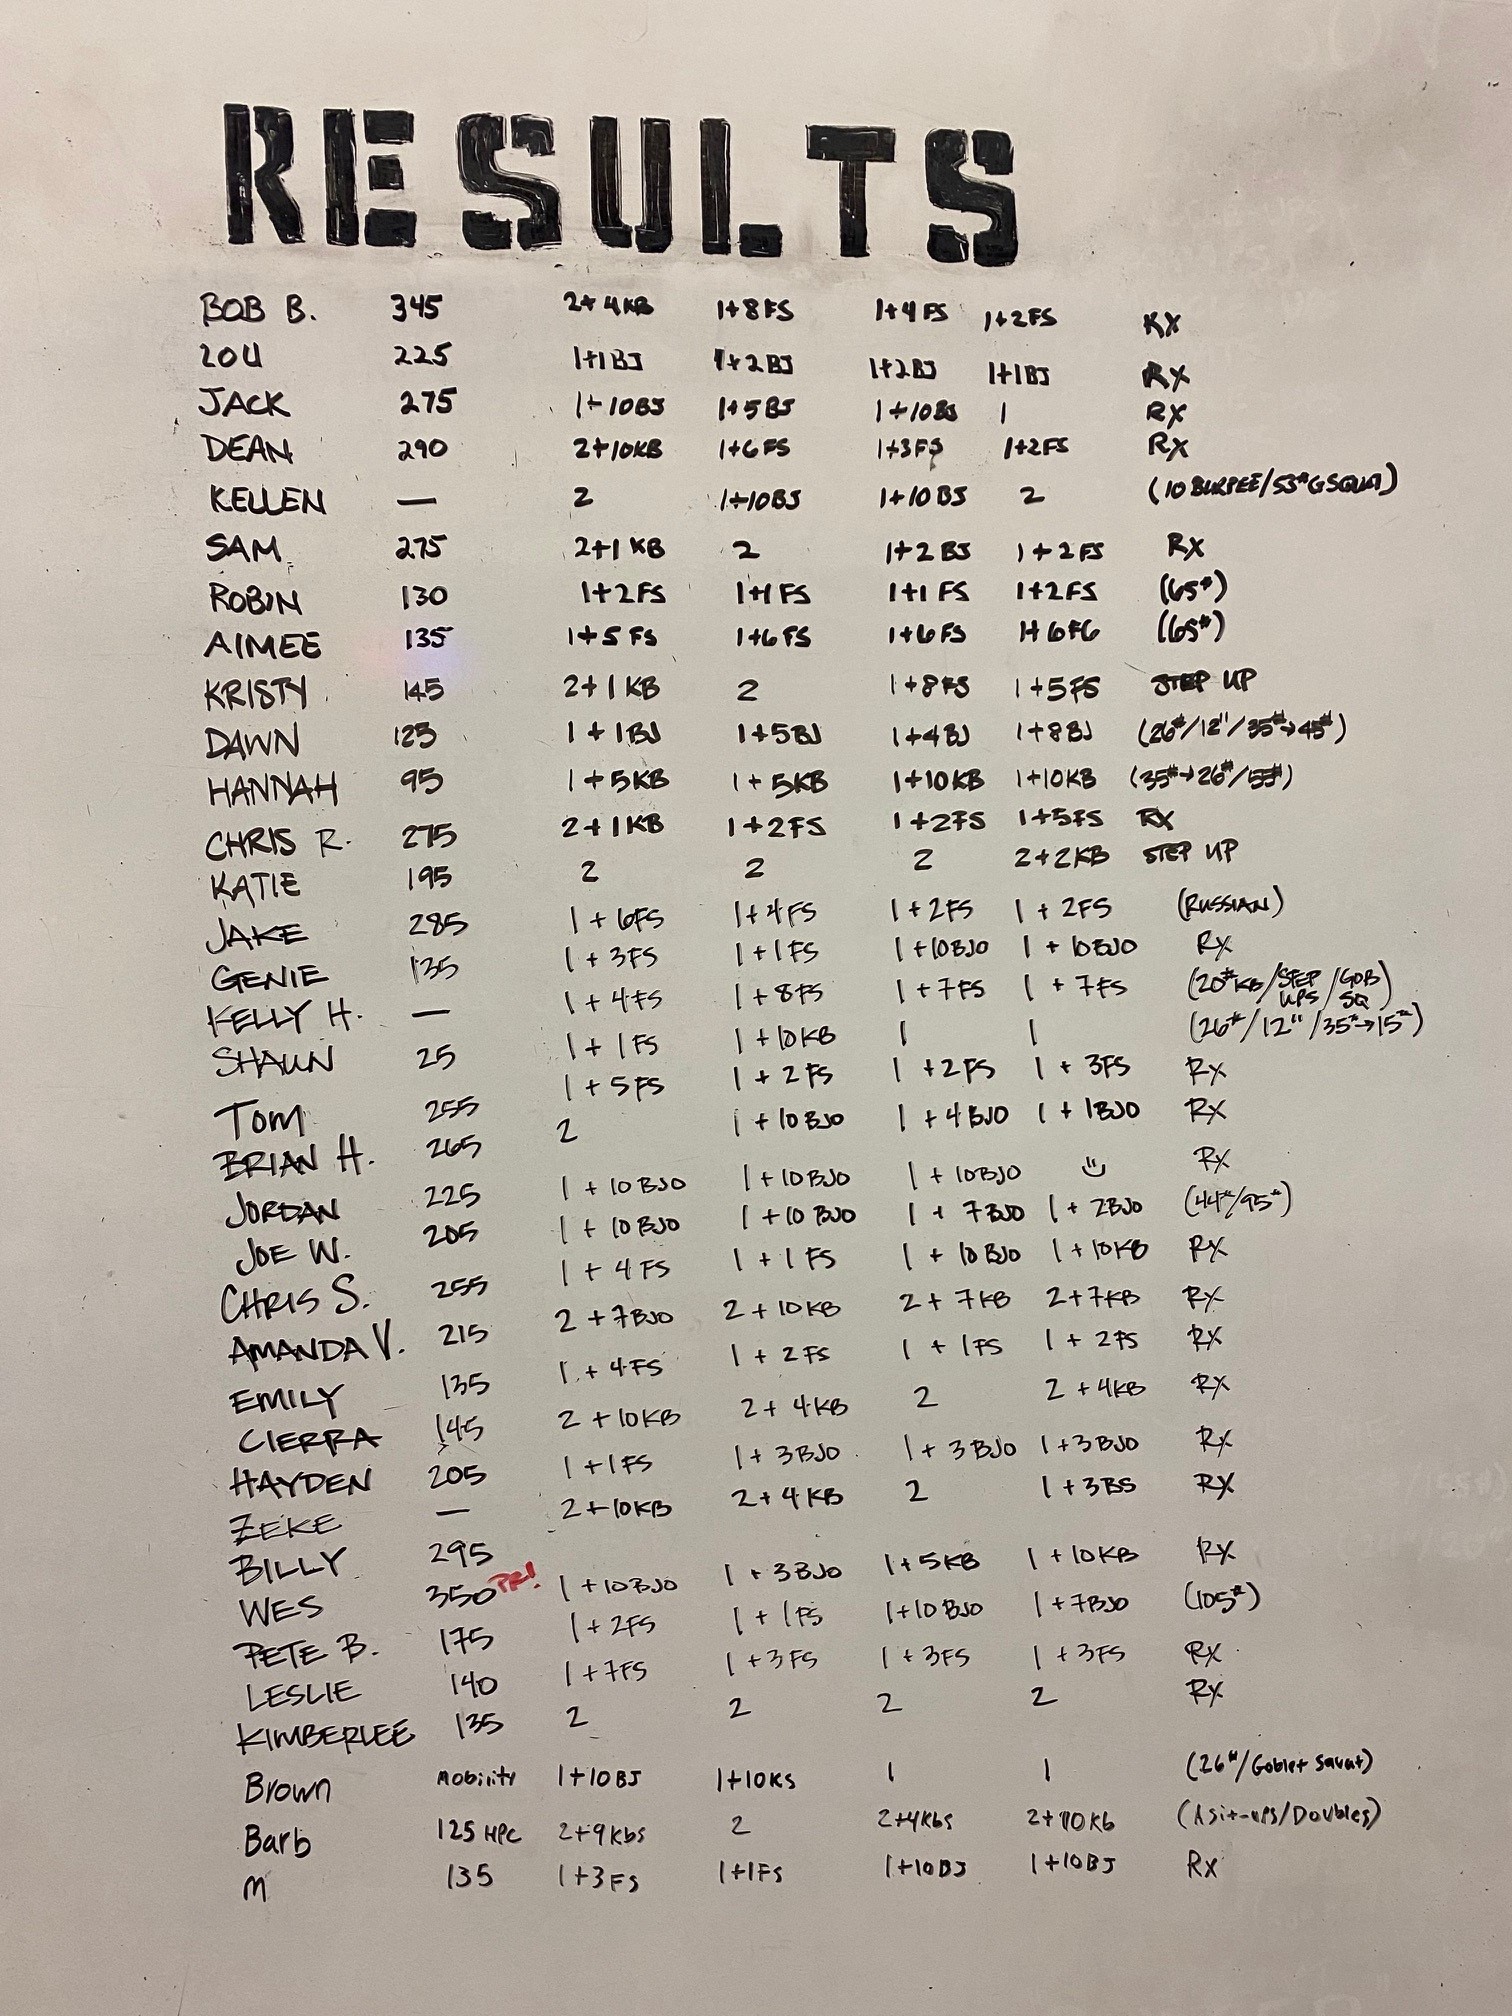 RESULTS
BOB B. 345 2+4KB 1+8FS 1+4FS 1+2FS RX
LOU 225 1+1BJ 1+2BJ 1+2BJ 1+1BJ RX
JACK 275 1+10BJ 1+5BJ 1+10BJ 1 RX
DEAN 290 2+10KB 1+6FS 1+3FS 1+2FS RX
KELLEN — 2 1+10BJ 1+10BJ 2 (10 BURPEE/53# G SQUAT)
SAM 275 2+1 KB 2 1+2 BJ 1+2FS RX
ROBIN 130 1+2FS 1+1FS 1+1 FS 1+2FS (65#)
AIMEE 135 1+5 FS 1+6FS 1+6FS 1+6FG (65#)
KRISTY 145 2+1 KB 2 1+8FS 1+5FS STEP UP
DAWN 125 1+1BJ 1+5BJ 1+4BJ 1+8BJ (26#/12"/35#→45#)
HANNAH 95 1+5KB 1+5KB 1+10KB 1+10KB (35#→26#/55#)
CHRIS R. 275 2+1KB 1+2FS 1+2FS 1+5FS RX
KATIE 195 2 2 2 2+2KB STEP UP
JAKE 285 1+6FS 1+4FS 1+2FS 1+2FS (RUSSIAN)
GENIE 135 1+3FS 1+1FS 1+10BJO 1+10BJO RX
KELLY H. — 1+4FS 1+8FS 1+7FS 1+7FS (20#KB/STEP UPS/GOB SQ)
SHAUN 25 1+1FS 1+10KB 1 1 (26#/12"/35#→15#)
TOM 255 1+5FS 1+2FS 1+2FS 1+3FS RX
BRIAN H. 265 2 1+10BJO 1+4BJO 1+1BJO RX
JORDAN 225 1+10BJO 1+10BJO 1+10BJO RX
JOE W. 205 1+10BJO 1+10BJO 1+7BJO 1+2BJO (44#/95#)
CHRIS S. 255 1+4FS 1+1FS 1+10BJO 1+10KB RX
AMANDA V. 215 2+7BJO 2+10KB 2+7KB 2+7KB RX
EMILY 135 1+4FS 1+2FS 1+1FS 1+2FS RX
CIERRA 145 2+10KB 2+4KB 2 2+4KB RX
HAYDEN 205 1+1FS 1+3BJO 1+3BJO 1+3BJO RX
ZEKE — 2+10KB 2+4KB 2 1+3BS RX
BILLY 295 1+10BJO 1+3BJO 1+5KB 1+10KB RX
WES 350 PR! 1+2FS 1+1FS 1+10BJO 1+7BJO (105#)
PETE B. 175 1+7FS 1+3FS 1+3FS 1+3FS RX
LESLIE 140 2 2 2 2 RX
KIMBERLEE 135
Brown Mobility 1+10BJ 1+10KS 1 1 (26#/Goblet Squat)
Barb 125 HPC 2+9Kbs 2 2+4Kbs 2+10Kb (Asit-ups/Doubles)
M 135 1+3FS 1+1FS 1+10BJ 1+10BJ Rx